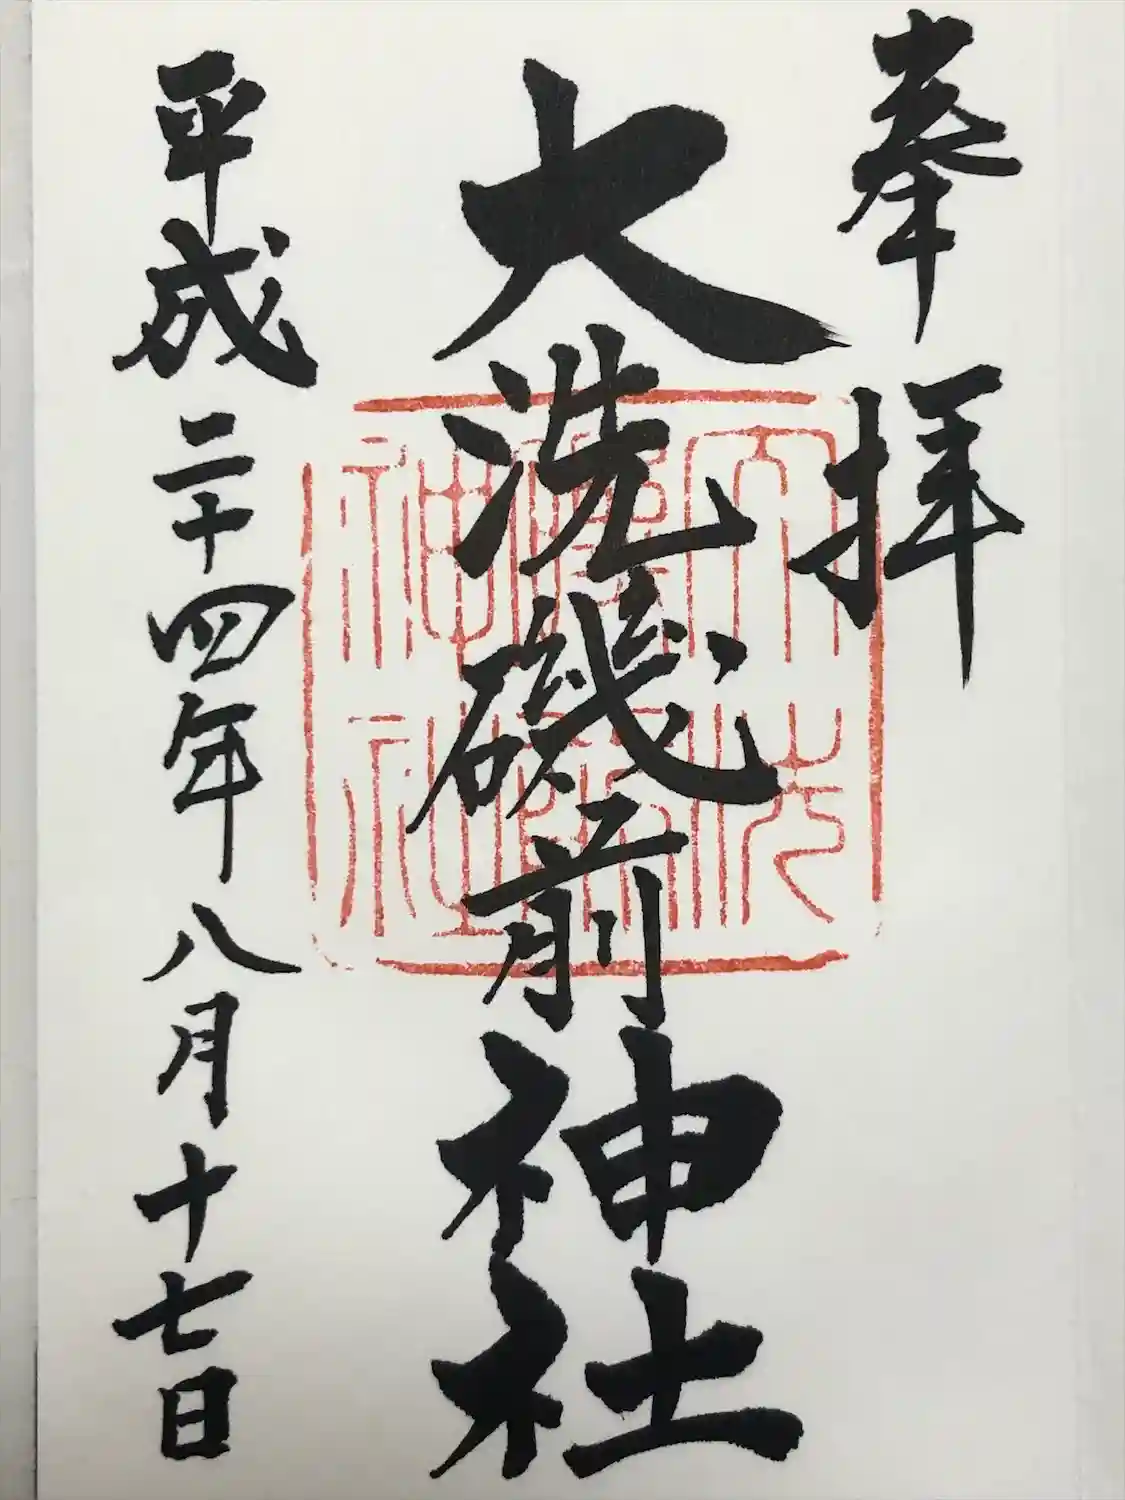 奉拝
大洗磯前神社
平成二十四年八月十七日
大洗
磯前
神社